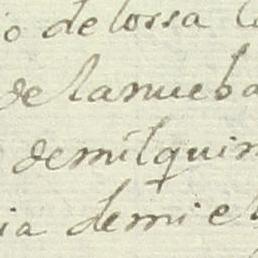 io de lossa
de la nueba
de mil quin
ia de mi el